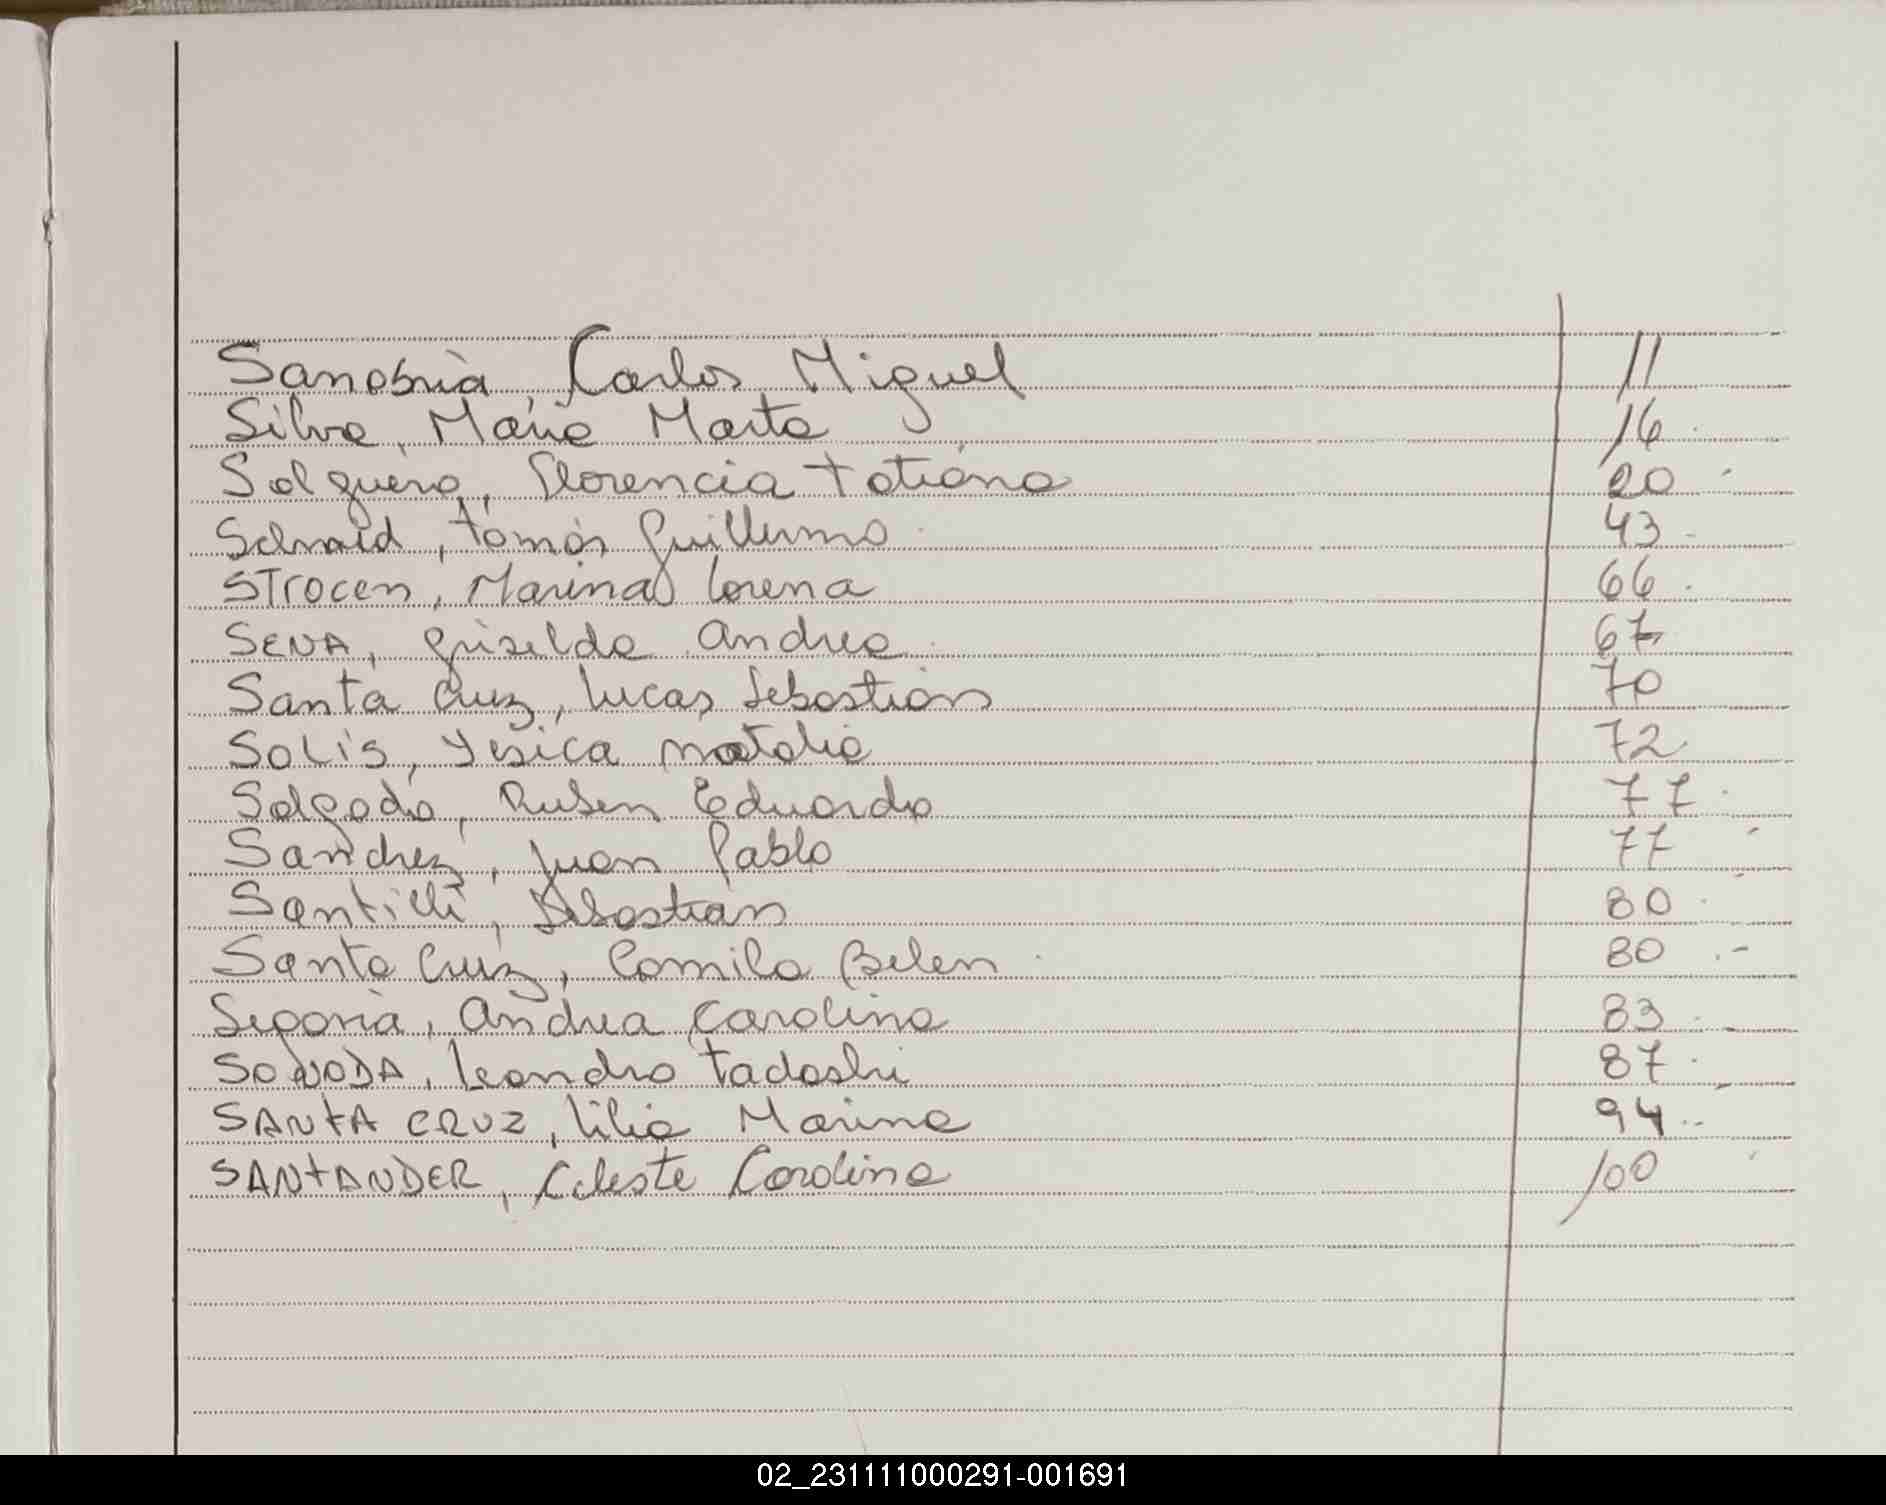 Sanabria, Carlos Miguel 11
Silva, María Marta 16
Salguero, Florencia Tatiana 20
Schmid, Tomás Guillermo 43
STrocen, Marina Lorena 66
SENA, Griselda Andrea 67
Santa Cruz, Lucas Sebastián 70
SoLis, Yesica Natalia 72
Salgado, Ruben Eduardo 77
Sanchez, Juan Pablo 77
Santilli, Sebastian 80
Santa Cruz, Camila Belen 80
Segovia, Andrea Carolina 83
SONODA, Leandro Tadashi 87
SANTA CRUZ, Lilia Marina 94
SANTANDER, Celeste Carolina 100
02_231111000291-001691